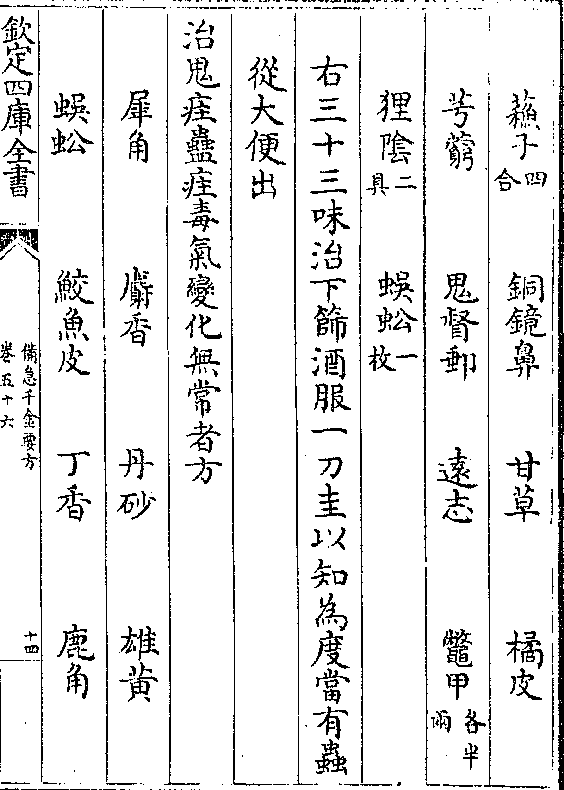 蘓子四合 銅鏡鼻 甘草 橘皮
芎藭 鬼督郵 遠志 鼈甲各半兩
狸陰二具 蜈蚣一枚
右三十三味治下篩酒服一刀圭以知為度當有蟲
從大便出
治鬼疰蠱疰毒氣變化無常者方
犀角 麝香 丹砂 雄黄
蜈蚣 鮫魚皮 丁香 鹿角
欽定四庫全書
備急千金要方
卷五十六
十四